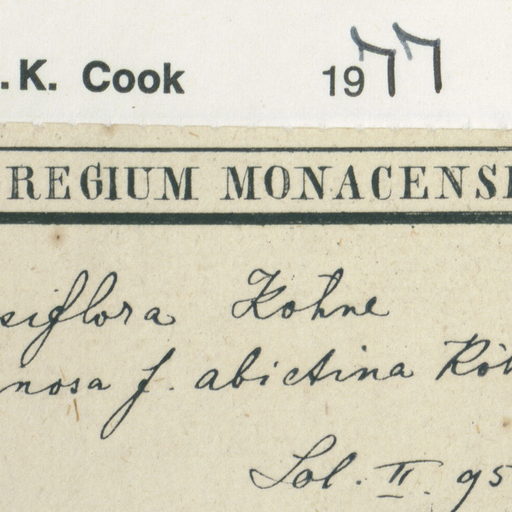 .K. Cook 1977
REGIUM MONACENSI
siflora Kohne
nosa f. abictina
Sol. II. 95